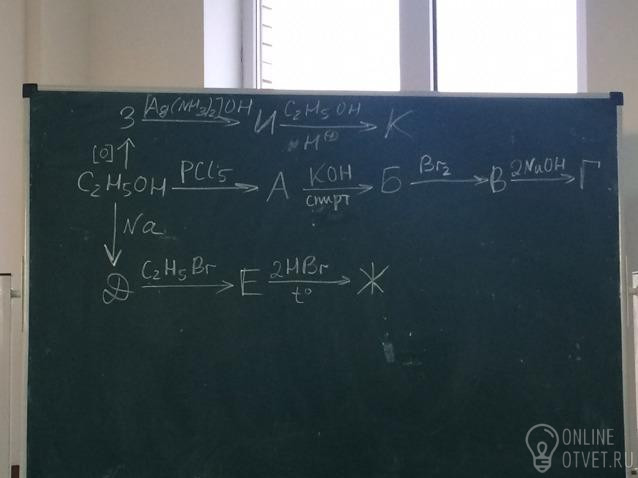 З [Ag(NH3)2]OH И C2H5OH H⊕ К
[O]
C2H5OH PCl5 А KOH спирт Б Br2 В 2NaOH Г
Na
Д C2H5Br Е 2HBr t° Ж
ONLINE
OTVET.RU